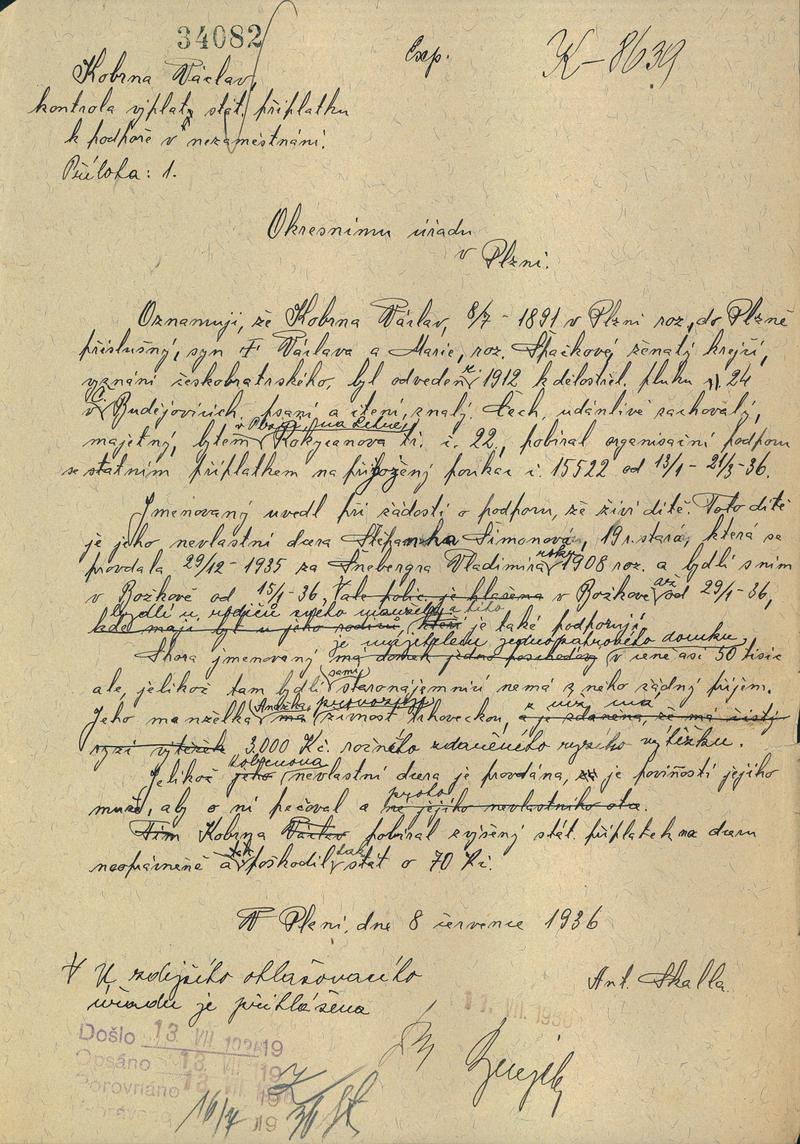 34082
Exp.
K-8639
Kobrna Václav,
kontrola výplaty stát. příplatku
k podpoře v nezaměstnání.
Příloha: 1.
Okresnímu úřadu
v Plzni.
Oznamuji, že Kobrna Václav, 8/7 - 1891 v Plzni roz., do Plzně
příslušný, syn Václava a Marie, roz. Špačkové, ženatý krejčí,
vyznání českobratrského, byl odveden r. 1912 k dělostřel. pluku č. 24
v Č. Budějovicích, psaní a čtení znalý, Čech, udánlivě zachovalý,
v Plzni, na Letné
majetný, bytem Rokycanova tř. č. 22, pobíral organisační podporu
se státním příplatkem na přiložený poukaz č. 15522 od 13/1 - 21/3-36.
Jmenovaný uvedl při žádosti o podporu, že živí dítě. Toto dítě
je jeho nevlastní dcera Štěpánka Šimonová, 19 r. stará, která se
provdala 29/12 - 1935 za Šnebergra Vladimíra roku 1908 roz. a bydlí s ním
v Božkově od 15/1-36, tale polic. je hlášena v Božkově až od 29/1-36,
bydlí u rodičů svého manžela a těho
kde mají byt u jeho rodičů, kteří je také podporují.
je majitelem jednopatrového domku,
Shora jmenovaný má domek jedno poschodový v ceně asi 50 tisíc
sami
ale, jelikož tam bydlí staronájemníci nemá z něho žádný příjem.
Anežka, provozuje
Jeho manželka má živnost trhoveckou, z níž má a je zdaněna, že má čistý
ryzí výtěžek 3.000 Kč. ročního zdaněného ryzího výtěžku.
Kobrnova
Jelikož jeho nevlastní dcera je provdána, je povinností jejího
proto
muže, aby o ni pečoval a ne jejího nevlastního otce.
Tím Kobrna Václav pobíral zvýšený stát. příplatek na dceru
neoprávněně a tak poškodil tak stát o 70 Kč.
V Plzni, dne 8 července 1936
V U zdejšího ohlašovacího
úřadu je přihlášena
Ant. Skalla.
11. VII. 1936
Došlo 13 VII 19
Opsáno 13 VII 19
Porovnáno 13 VII 19
16/7 36